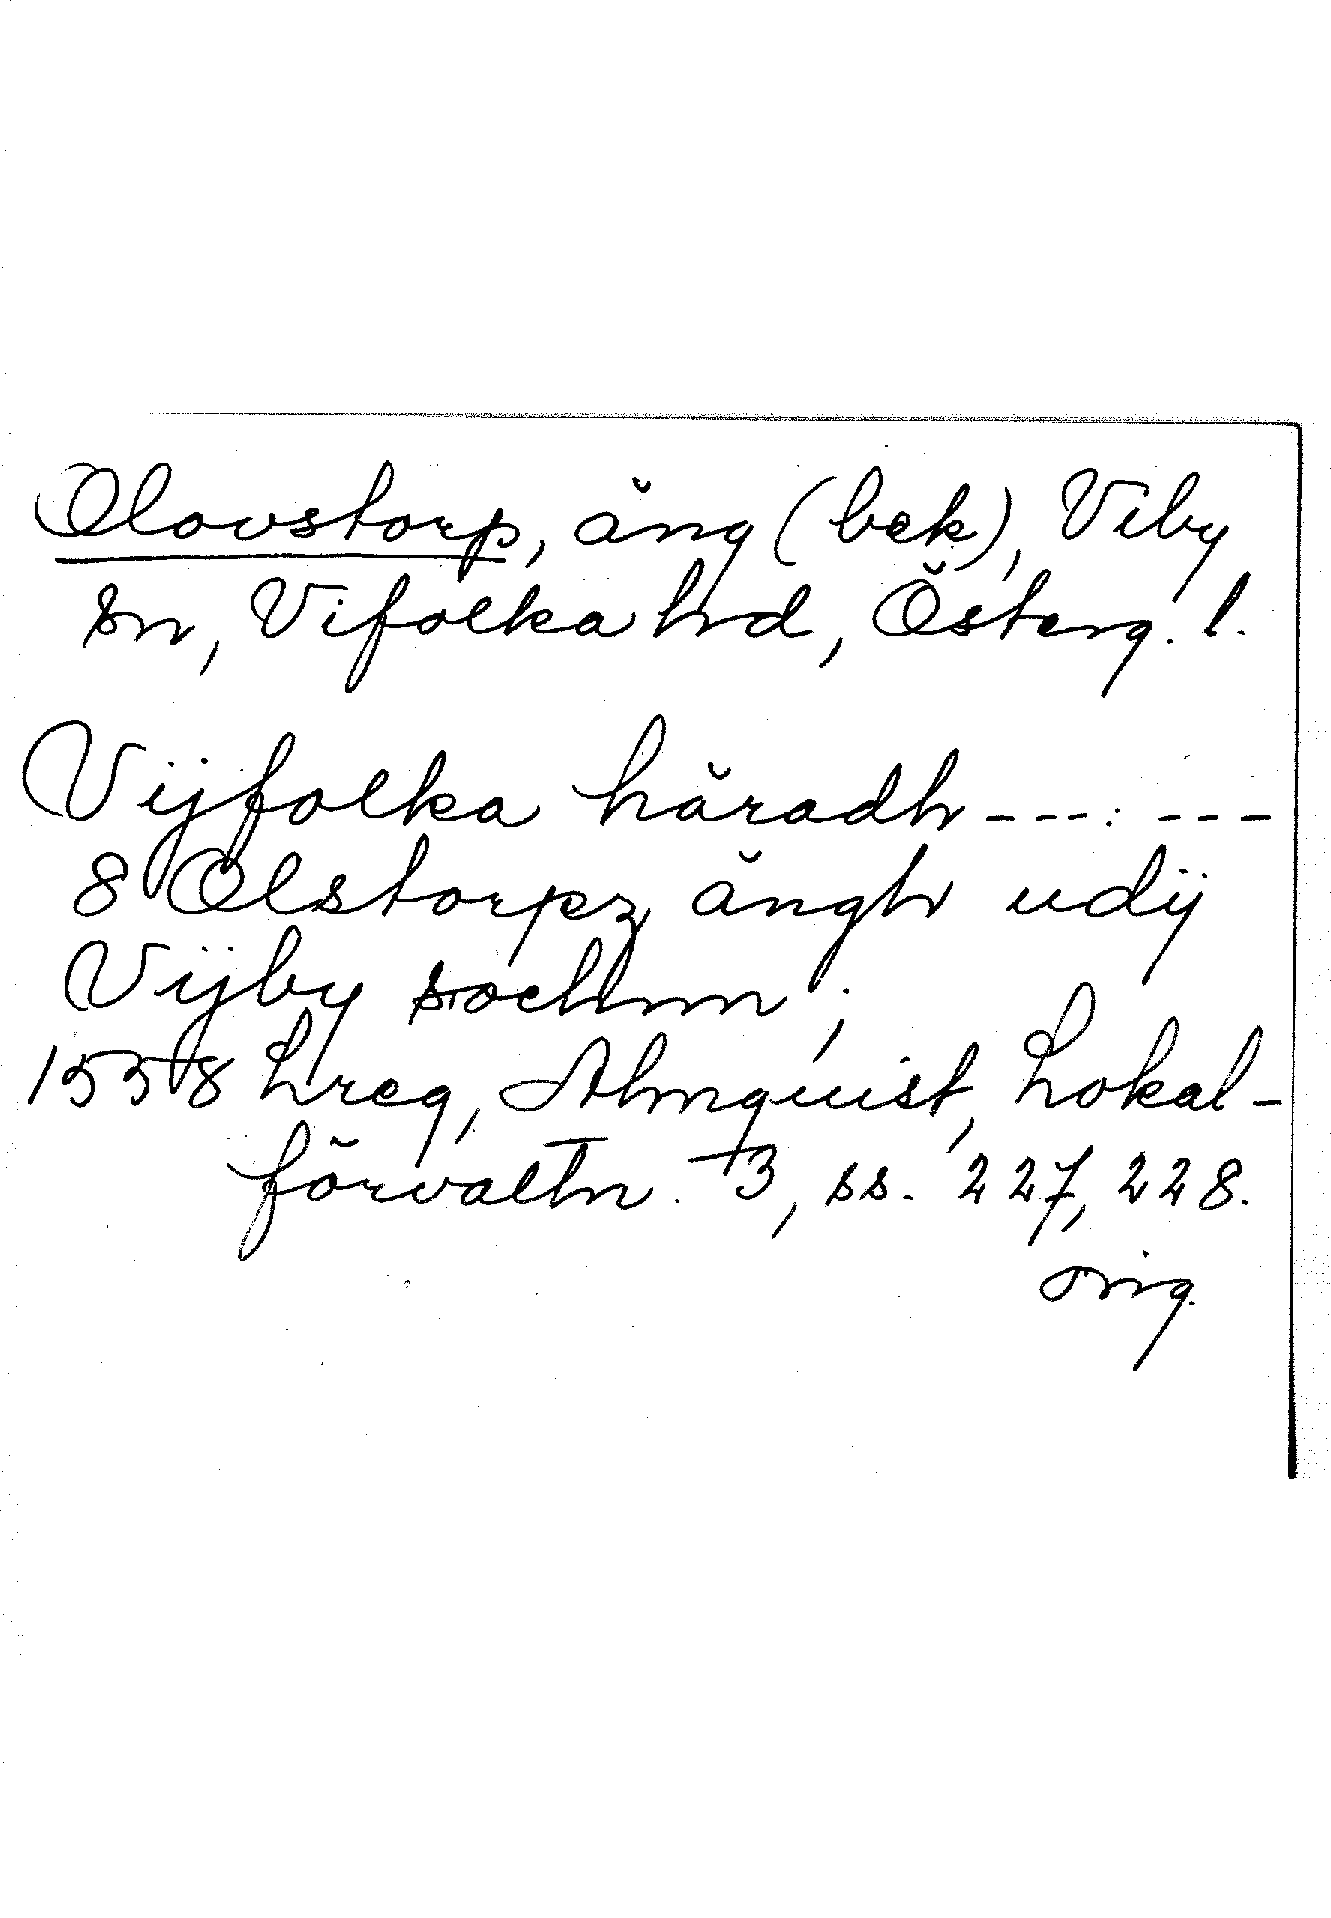 Olovstorp, äng (bek), Viby
sn, Vifolka hd, Österg. l.
Vijfolka häradh ---: ---
8 Olstorpz ängh udÿ
Vijby sochnn;
1558 Lreg, Almquist, Lokal-
förvaltn. 3, ss. 227, 228.
orig.